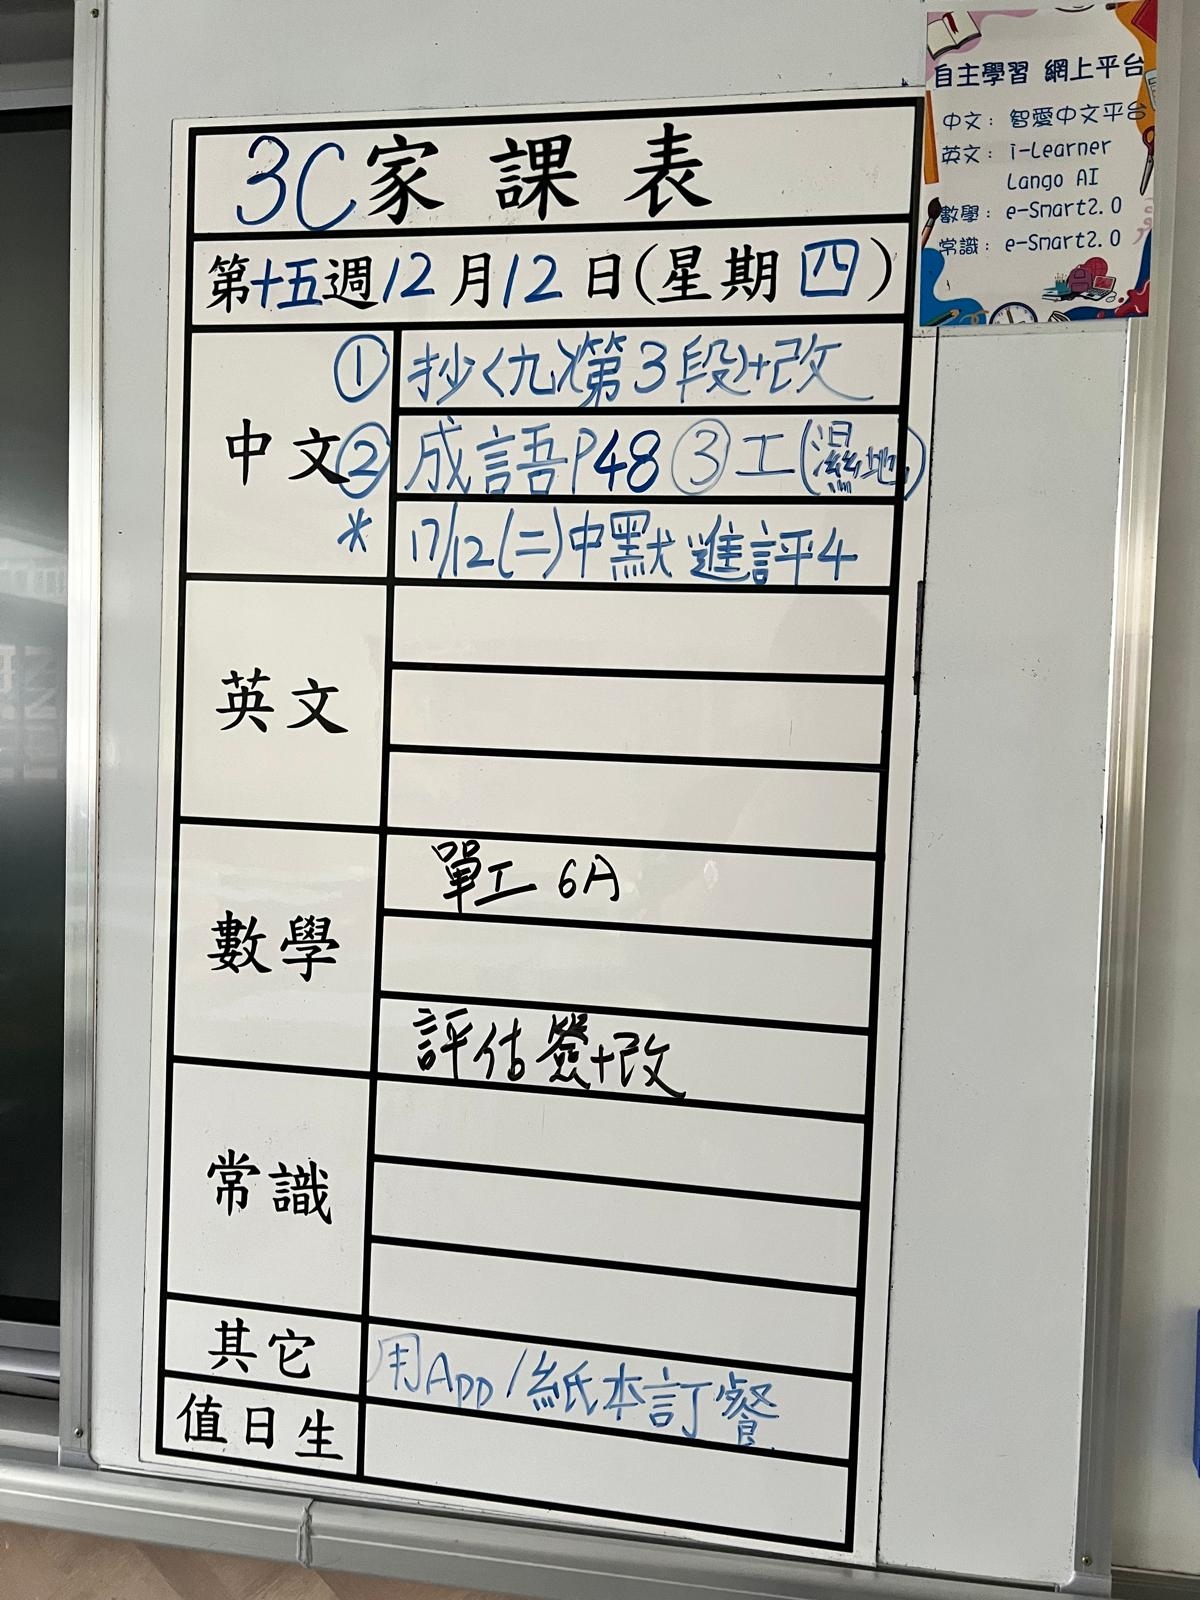 3C家課表
第十五週12月12日(星期四)
中文
① 抄〈九〉第3段+改
② 成語P48 ③工(濕地)
* 17/12(二)中默 進評4
英文
數學
單工 6A
評估簽+改
常識
其它
用App/紙本訂餐
值日生
自主學習 網上平台
中文：智愛中文平台
英文：i-Learner
Lango AI
數學：e-Smart2.0
常識：e-Smart2.0